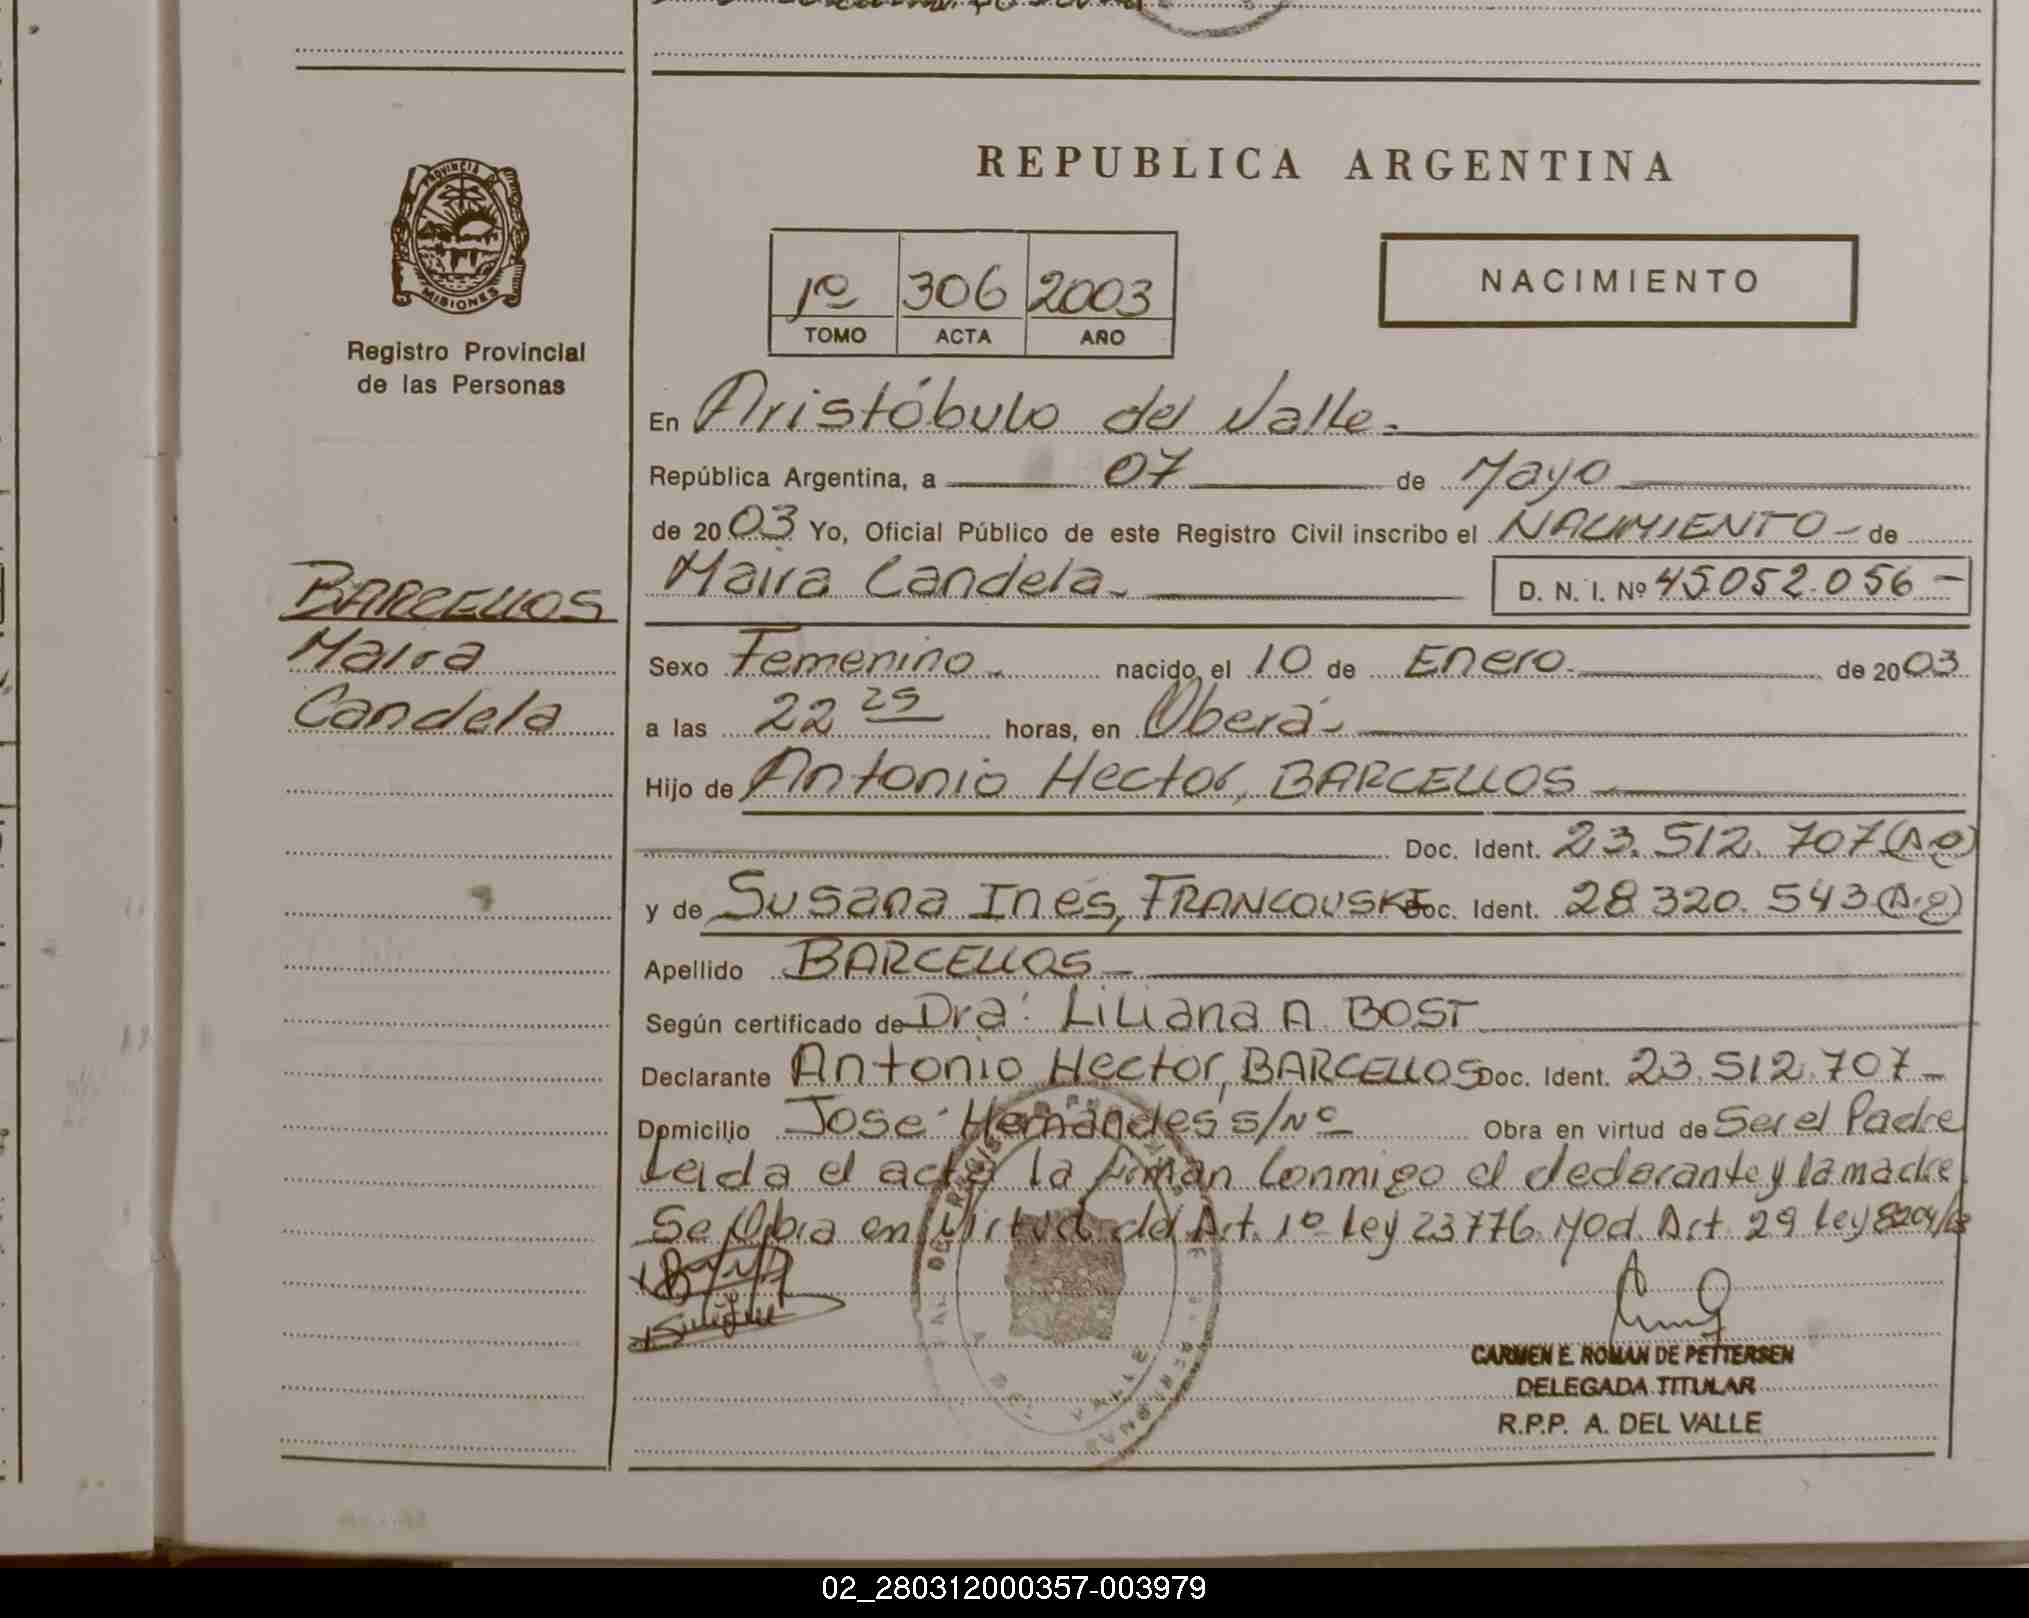 REPUBLICA ARGENTINA
PROVINCIA DE
MISIONES
Registro Provincial
de las Personas
1º 306 2003
TOMO ACTA AÑO
NACIMIENTO
En Aristóbulo del Valle.
República Argentina, a 07 de Mayo
de 2003 Yo, Oficial Público de este Registro Civil inscribo el NACIMIENTO - de
Maira Candela. D. N. I. Nº 45.052.056 -
BARCELLOS
Maira
Candela
Sexo Femenino. nacido el 10 de Enero. de 2003
a las 22 25 horas, en Oberá.
Hijo de Antonio Hector, BARCELLOS
Doc. Ident. 23.512.707 (A.O)
y de Susana Ines, FRANCOUSKI Doc. Ident. 28.320.543
Apellido BARCELLOS
Según certificado de Dra: Liliana A. BOST
Declarante Antonio Hector, BARCELLOS Doc. Ident. 23.512.707 -
Domicilio José Hernandes s/Nº Obra en virtud de Ser el Padre
Leida el acta la firman Conmigo el declarante y la madre
Se Obra en Virtud del Art. 1º Ley 23776. Mod. Art. 29 Ley 8204/63
CARMEN E. ROMAN DE PETTERSEN
DELEGADA TITULAR
R.P.P. A. DEL VALLE
02_280312000357-003979